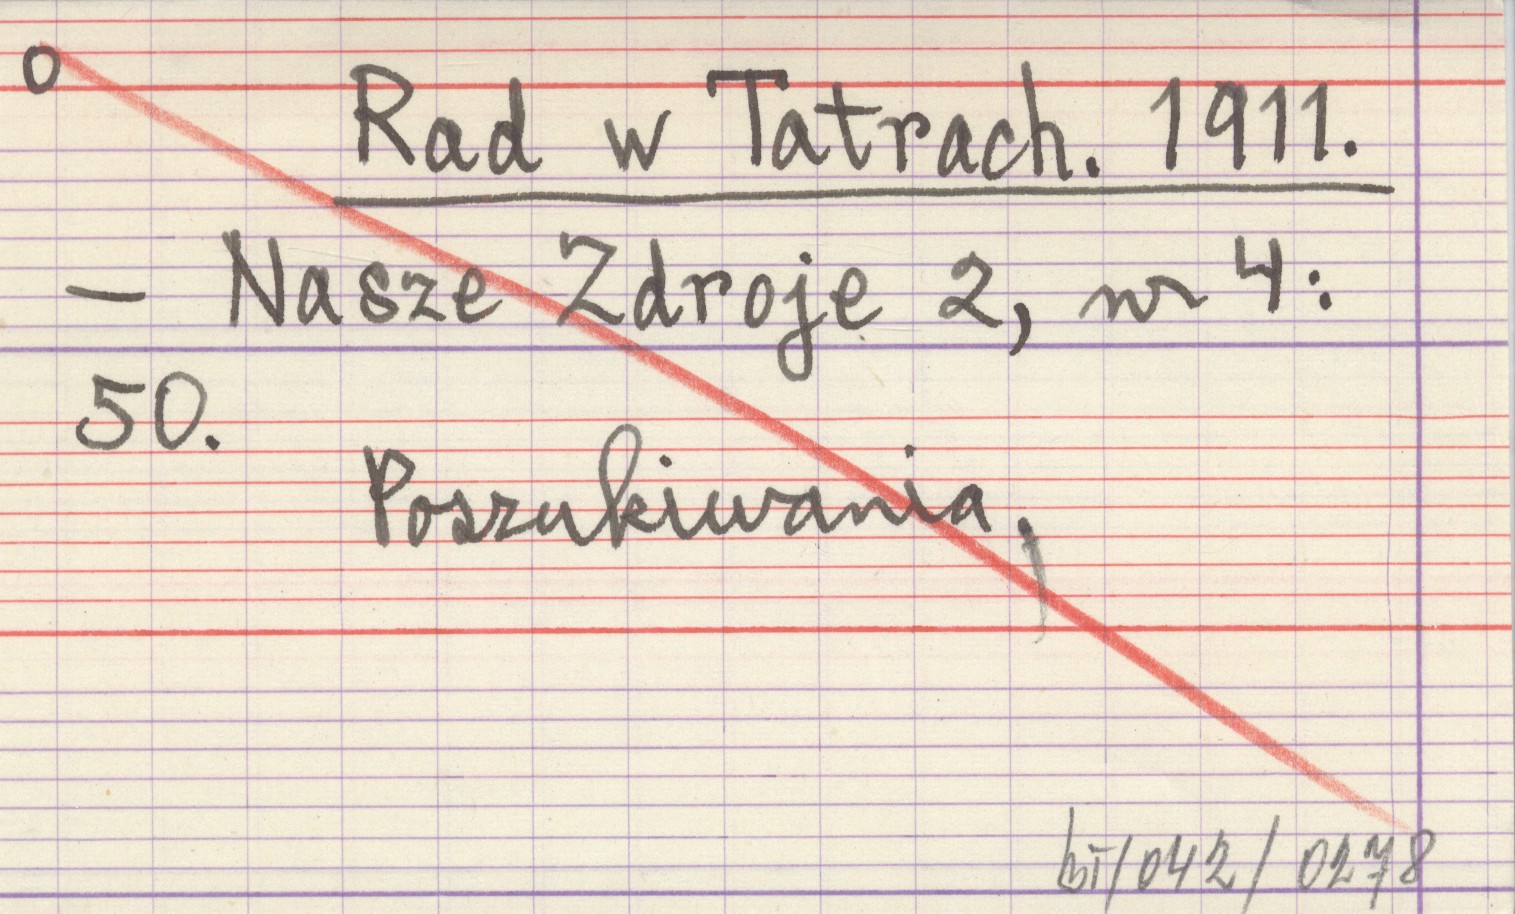 o
Rad w Tatrach. 1911.
— Nasze Zdroje 2, nr 4:
50.
Poszukiwania.
bT/042/0278